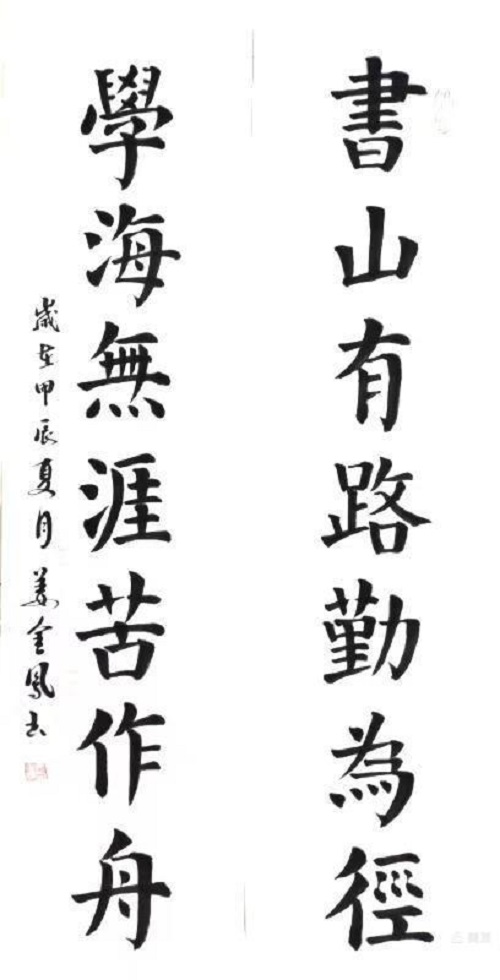 書山有路勤為徑
學海無涯苦作舟
歲在甲辰夏月姜金鳳書